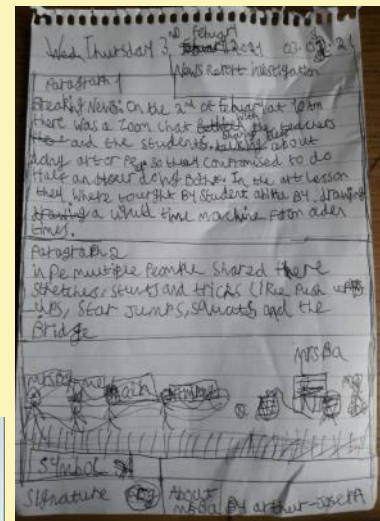 Wed Thursday 3 Febuari 2021 03.02.21
News Report investigation
Paragraph 1
Breaking News: On the 2nd of Febuar at 10am
there was a Zoom chat with the teachers
and the students about
doing art or Pe, so they compromised to do
half an hour doing Both. In the art lesson
they where tought By student
a time machine from
times.
Paragraph 2
in Pe multiple People shared there
Stretches, stunts and tricks Like Push
ups, Star Jumps, squats and the
Bridge
mrs Ba
Symbol
Signature
About
mrs Ba By arthur-Joseph